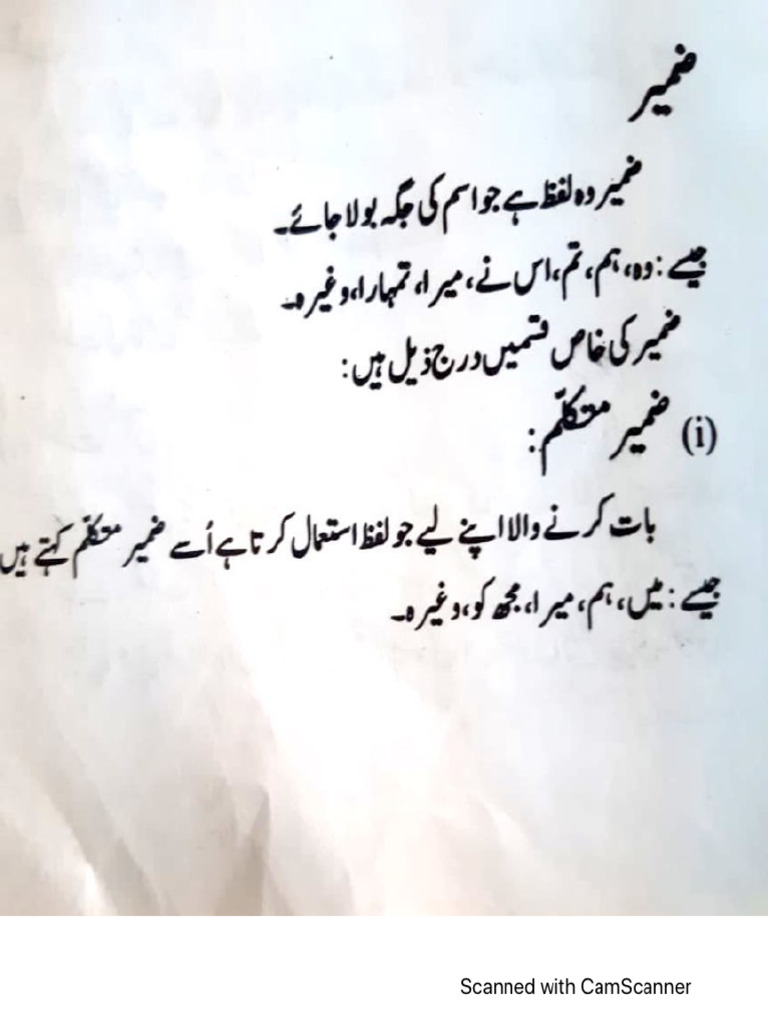 ضمیر
ضمیر وہ لفظ ہے جو اسم کی جگہ بولا جائے۔
جیسے: وہ، ہم، تم، اس نے، میرا، تمہارا، وغیرہ۔
ضمیر کی خاص قسمیں درج ذیل ہیں:
(i) ضمیر متکلّم:
بات کرنے والا اپنے لیے جو لفظ استعمال کرتا ہے اُسے ضمیر متکلّم کہتے ہیں
جیسے: میں، ہم، میرا، مجھ کو، وغیرہ۔
Scanned with CamScanner